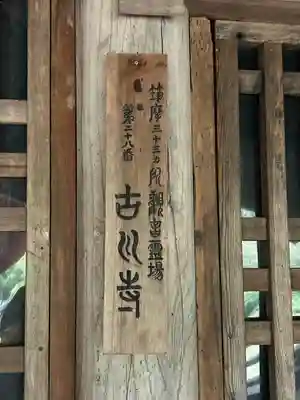 筑摩三十三カ所観音霊場
第二十八番
古川寺